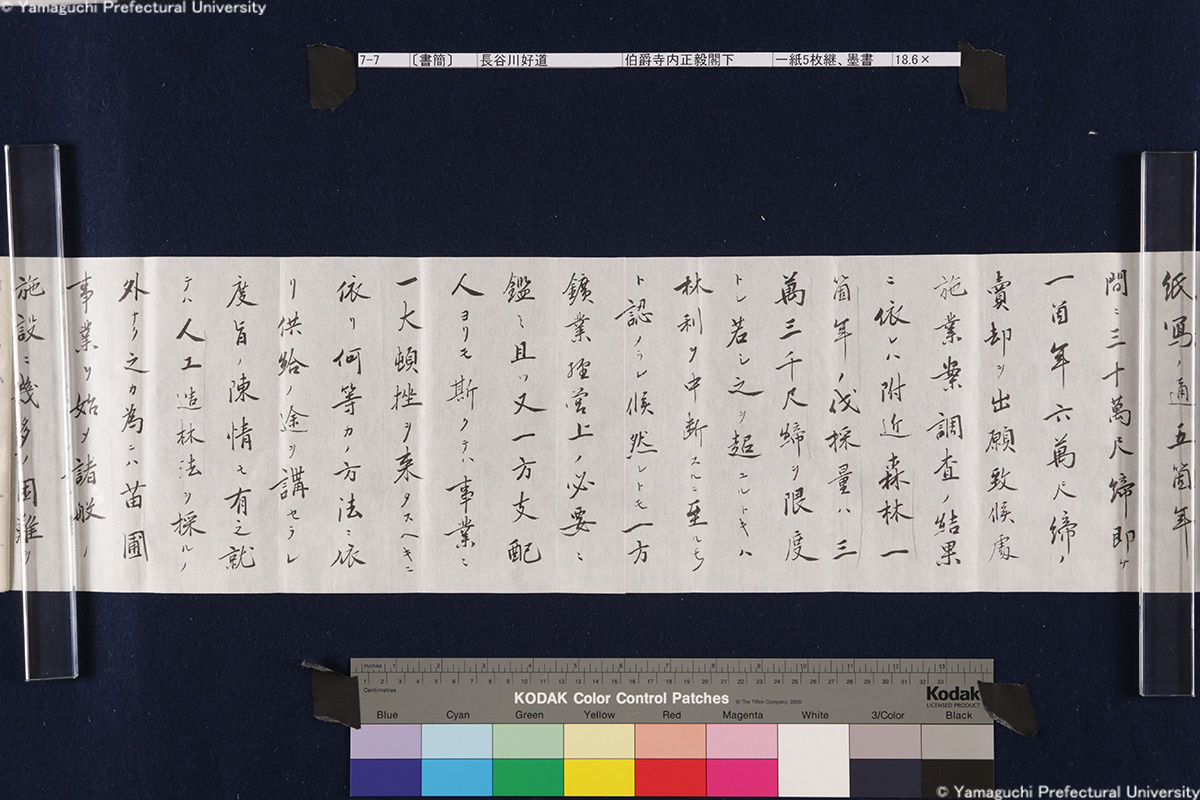 © Yamaguchi Prefectural University
7-7 〔書簡〕 長谷川好道 伯爵寺内正毅閣下 一紙5枚継、墨書 18.6×
紙写ノ通五箇年
間ニ三十萬尺締即ケ
一箇年六萬尺締ノ
賣却ヲ出願致候處
施業案調査ノ結果
ニ依レハ附近森林一
箇年ノ伐採量ハ三
萬三千尺締ヲ限度
トシ若シ之ヲ超ユルトキハ
林利ヲ中断スルニ至ルモ
ト認メラレ候然レトモ一方
鑛業経営上ノ必要ニ
鑑ミ且ツ又一方支配
人ヨリモ斯クテハ事業ニ
一大頓挫ヲ来タスヘキニ
依リ何等カノ方法ニ依
リ供給ノ途ヲ講セラレ
度旨ノ陳情モ有之就
テハ人工造林法ヲ採ルノ
外ナク之カ為ニハ苗圃
事業ヲ始メ諸般ノ
施設ニ幾多ノ困難ヲ
Inches 1 2 3 4 5 6 7 8 9 10 11 12 13
Centimetres 1 2 3 4 5 6 7 8 9 10 11 12 13 14 15 16 17 18 19 20 21 22 23 24 25 26 27 28 29 30 31 32 33
KODAK Color Control Patches © The Tiffen Company, 2000 Kodak
LICENSED PRODUCT
Blue Cyan Green Yellow Red Magenta White 3/Color Black
© Yamaguchi Prefectural University